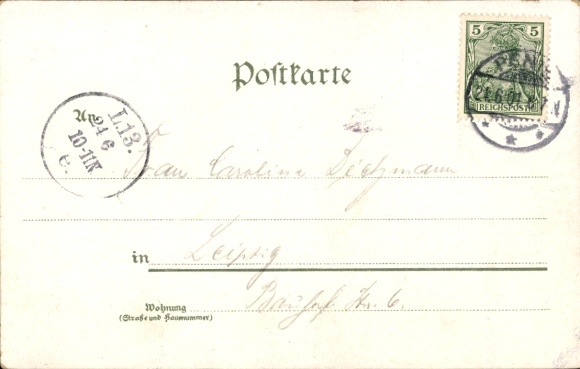 Postkarte
5 5
REICHSPOST
PEN
24.6.01
L.13.
24 6
10-11N
e.
An
Frau Carolina Dietzmann
in Leipzig
Wohnung
(Straße und Hausnummer)
Bauhof Str. 6.